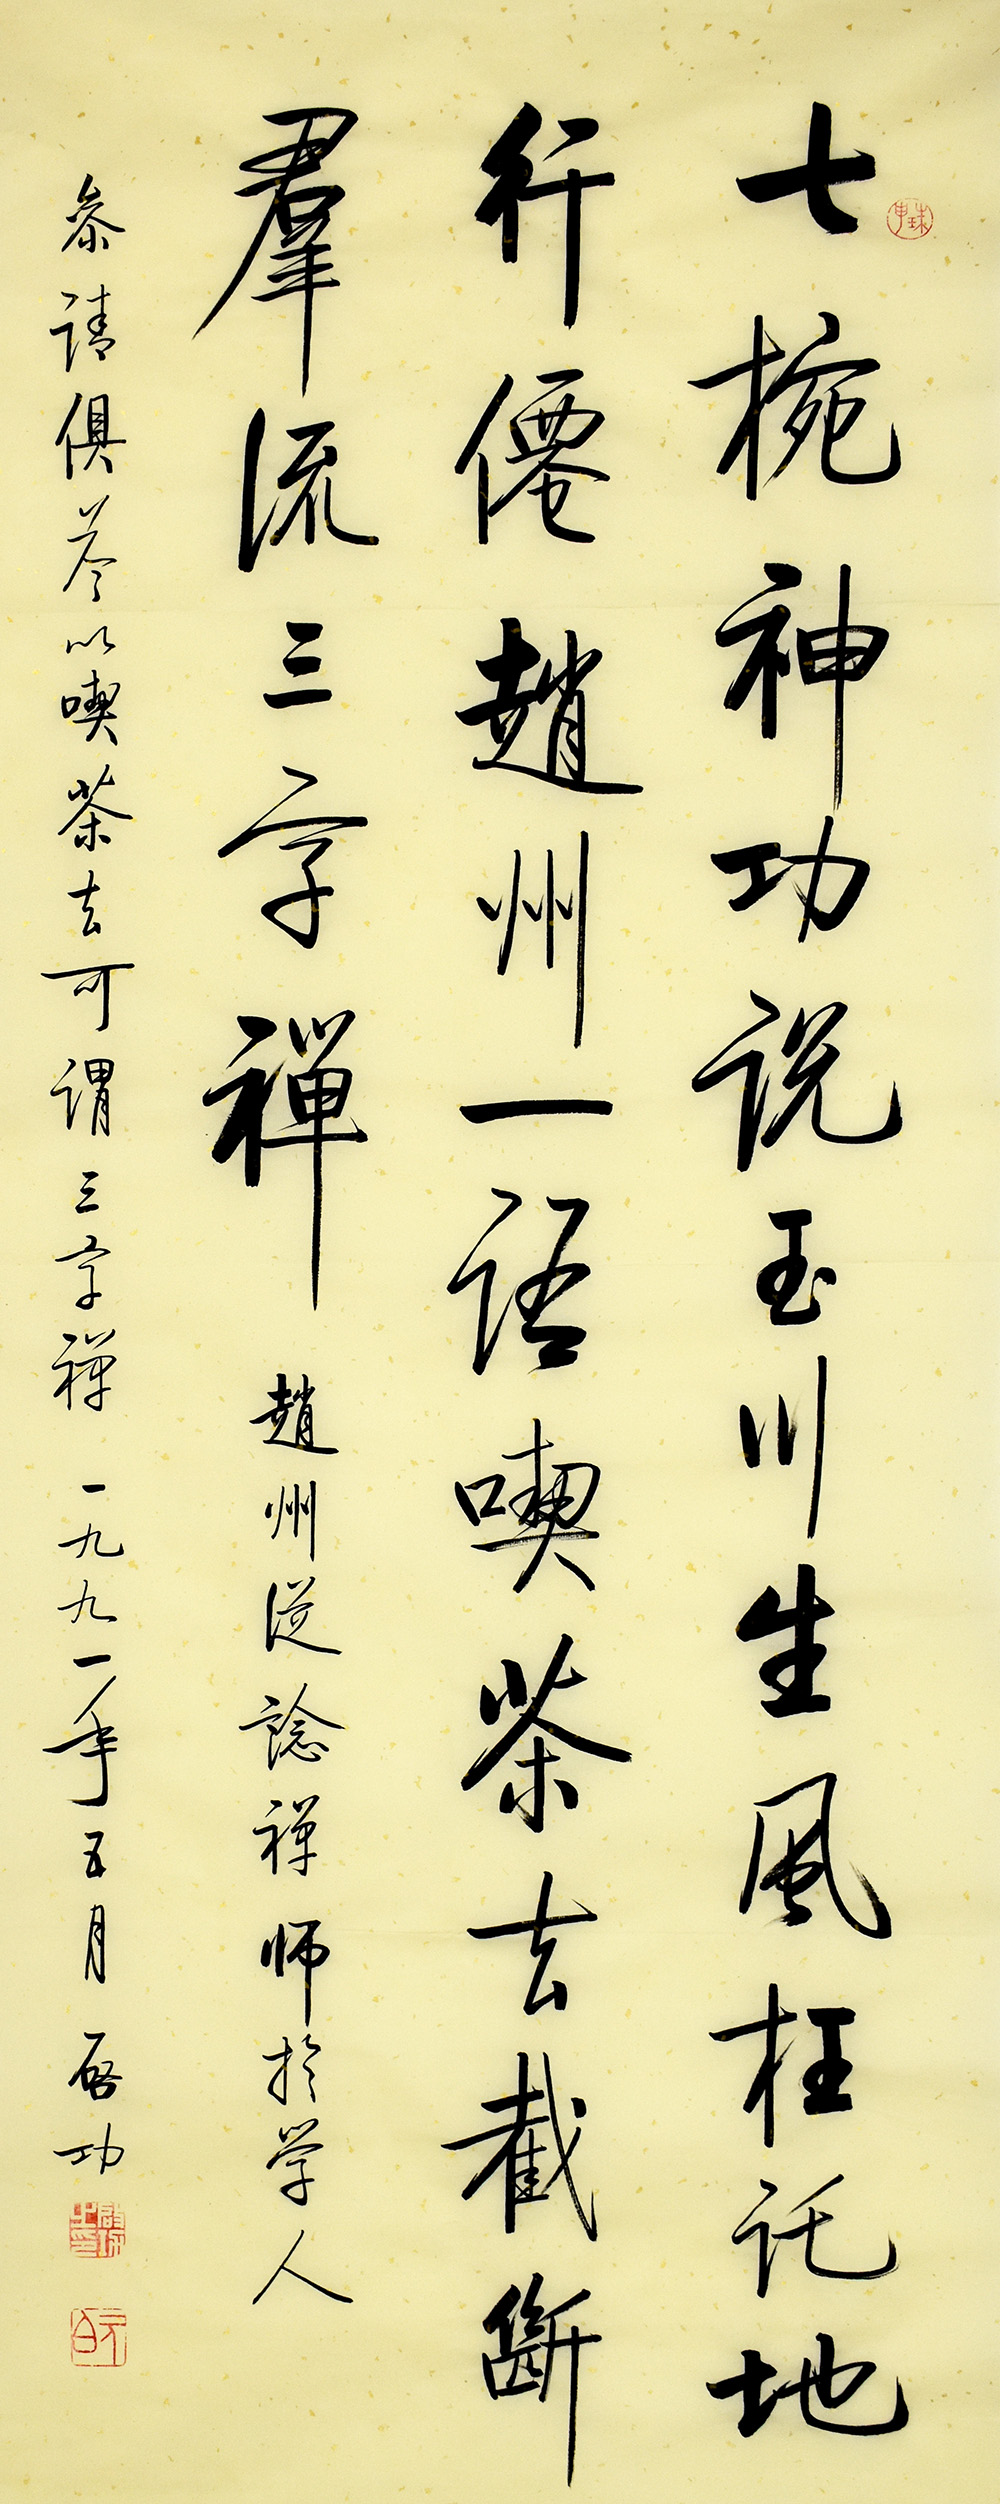 七椀神功说玉川生風枉託地
行僊趙州一語喫茶去截斷
羣流三字禪 趙州從諗禪師於学人
參請俱答以喫茶去可謂三字禪 一九九一年五月 啓功